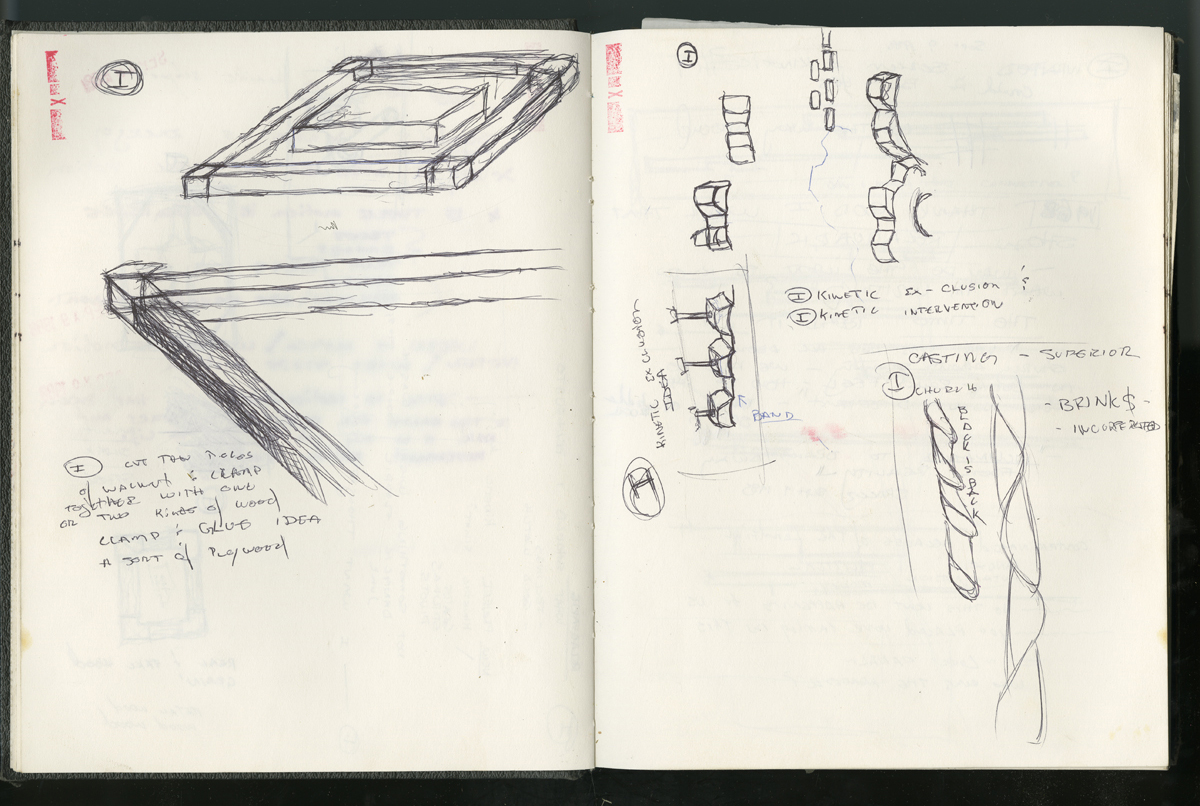 I
I CUT THIN PIECES
of WALNUT & CLAMP
TOGETHER WITH ONE
OR TWO KINDS of WOOD
CLAMP & GLUE IDEA
A SORT of PLYWOOD
I
I KINETIC EX-CLUSION &
I KINETIC INTERVENTION
KINETIC EXCLUSION
IDEA
I
BAND
CASTING - SUPERIOR
I CHURCH
BLACK IS BACK
- BRINK$ -
- INCORPERATED